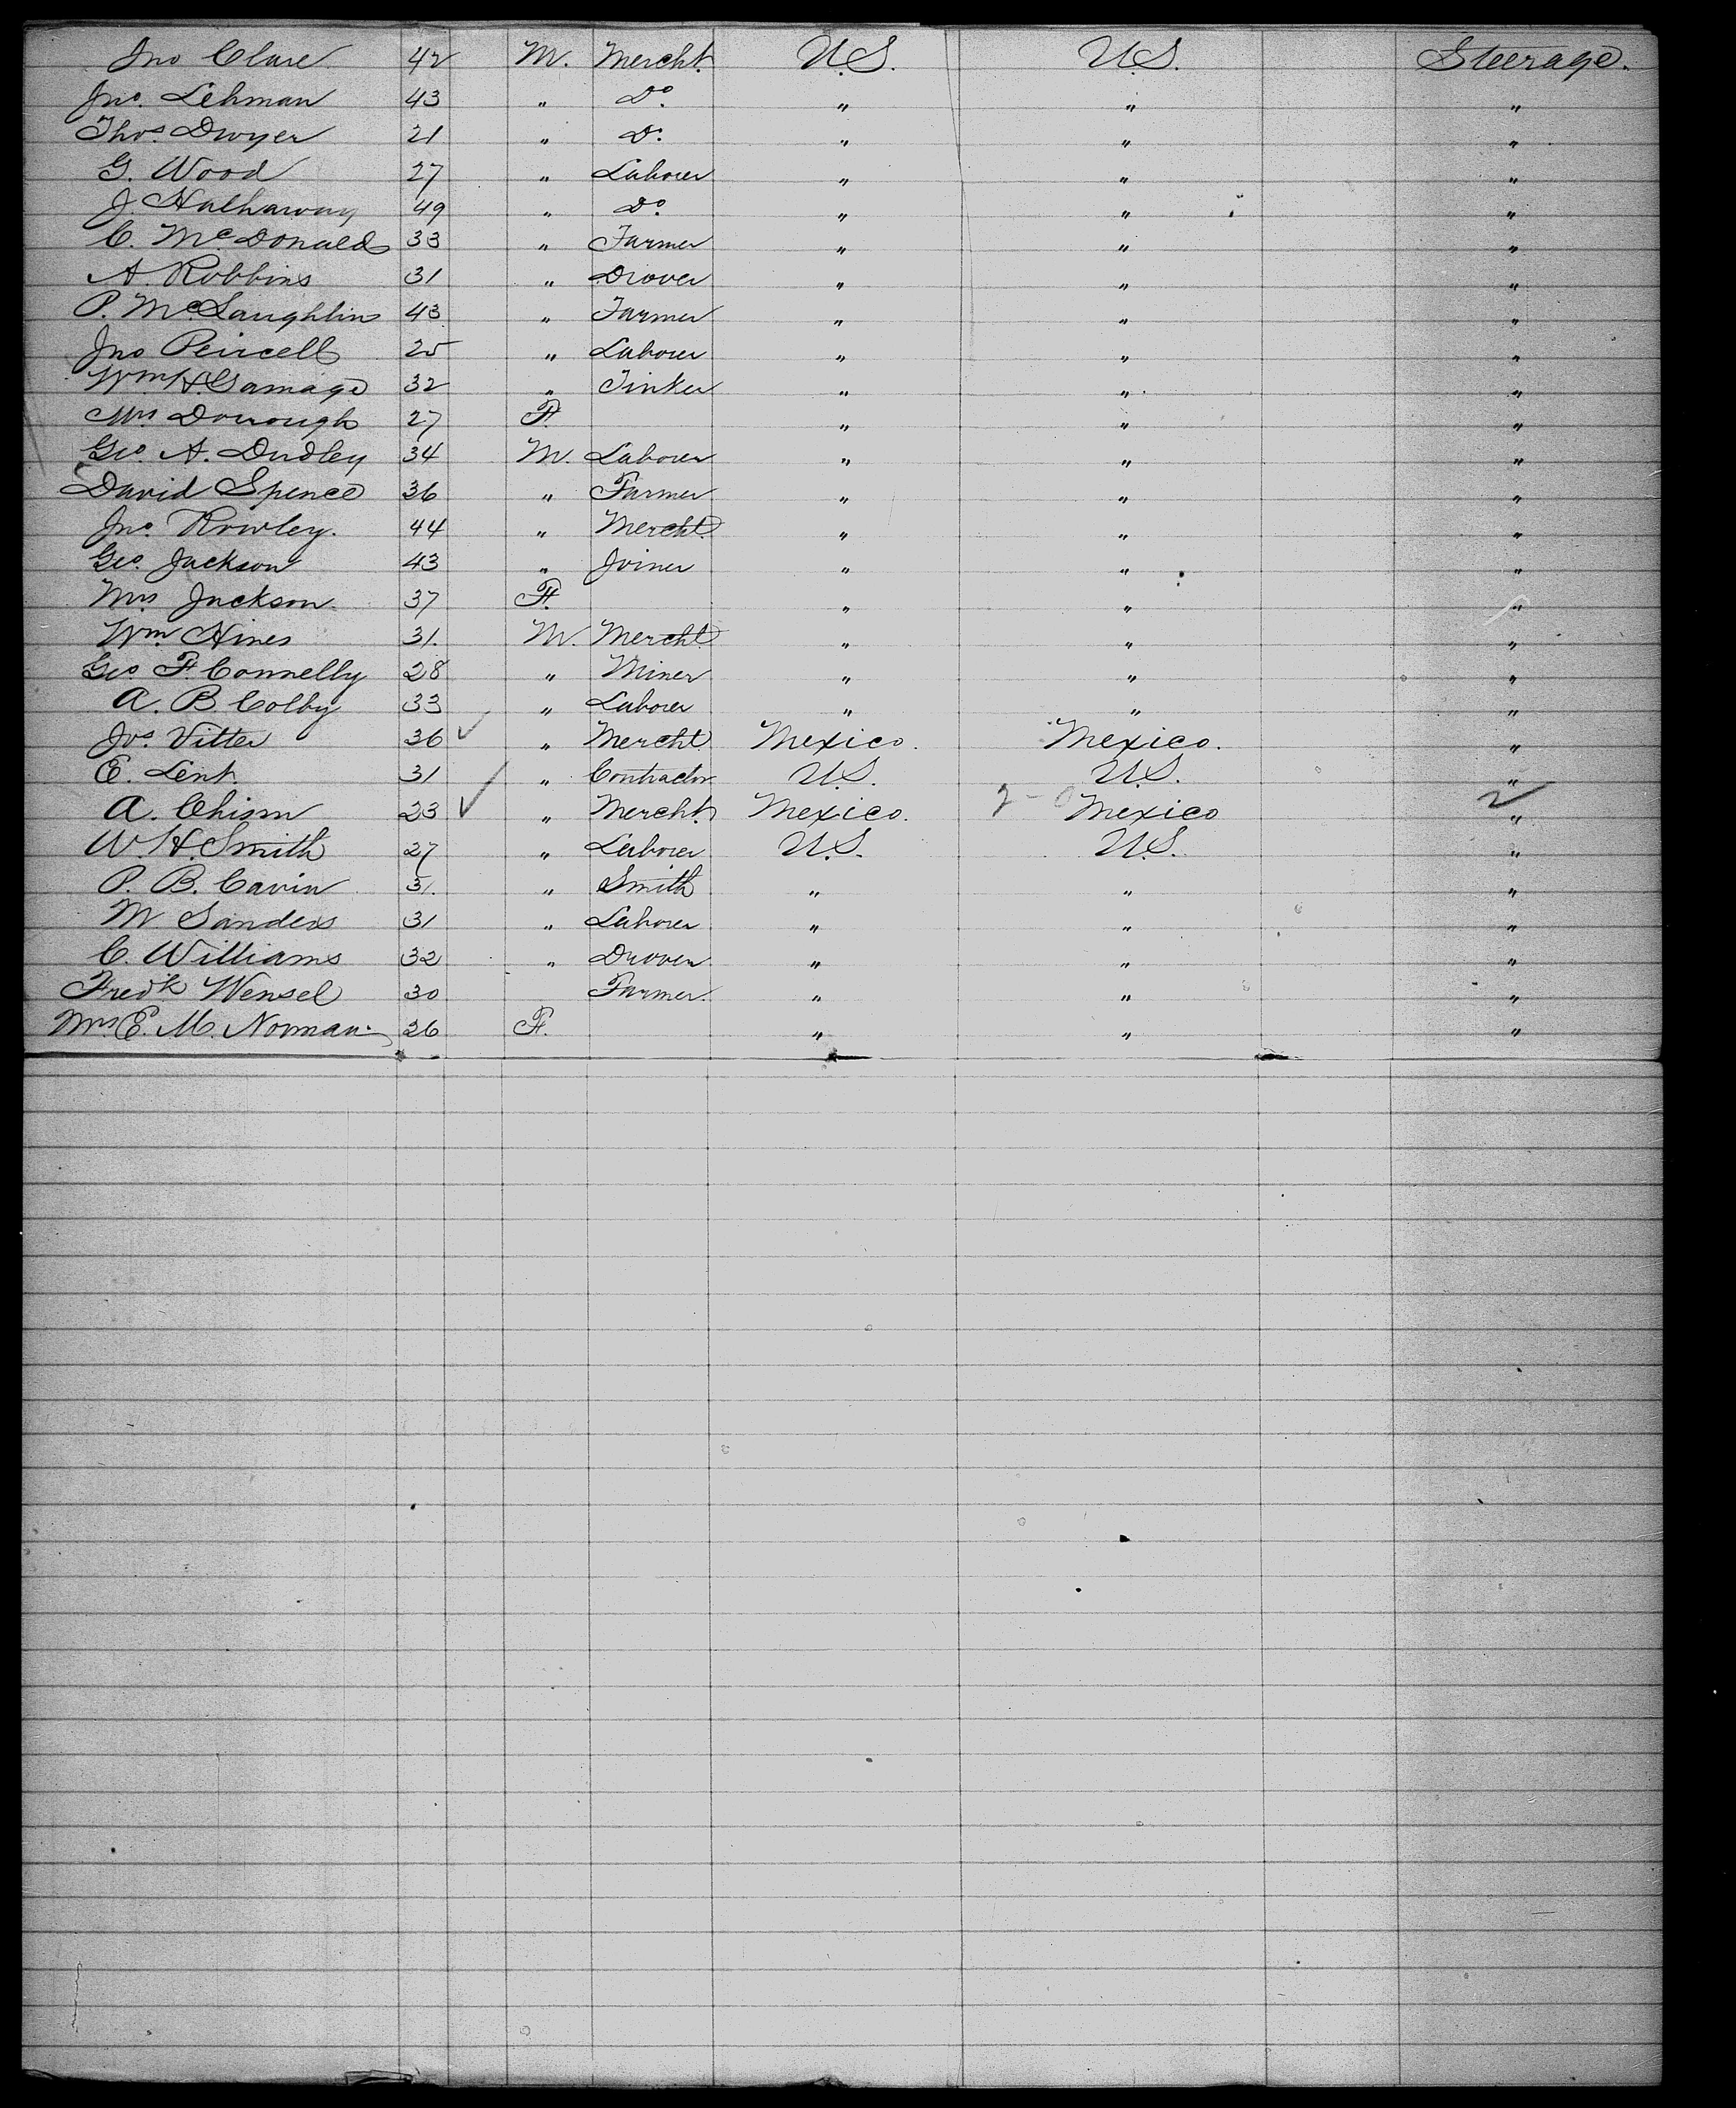 Jno Clare 42 M. Mercht. U.S. U.S. Steerage.
Jno. Lehman 43 " Do " " "
Thos. Dwyer 21 " Do. " " "
G. Wood 27 " Laborer " " "
J Hathaway 49 " Do. " " "
C. McDonald 33 " Farmer " " "
A. Robbins 31 " Drover " " "
P. McLaughlin 43 " Farmer " " "
Jno Peircell 25 " Laborer " " "
Wm. H. Gamage 32 " Tinker " " "
Mrs Dorrough 27 F. " " "
Geo. A. Dudley 34 M. Laborer " " "
David Spence 36 " Farmer " " "
Jno. Rowley. 44 " Mercht. " " "
Geo. Jackson 43 " Joiner " " "
Mrs Jackson. 37 F. " " "
Wm Hines 31. M. Mercht. " " "
Geo F. Connelly 28 " Miner " " "
A. B. Colby 33 " Laborer " " "
Jos. Vitter 36 ✓ " Mercht. Mexico. Mexico. "
E. Lent. 31 " Contractor. U.S. U.S. "
A. Chism 23 ✓ " Mercht. Mexico. 2 - 0 Mexico 2 "
W. H. Smith 27 " Laborer U.S. U.S. "
P. B. Cavin 31. " Smith " " "
W. Sanders 31 " Laborer " " "
C. Williams 32 " Drover " " "
Fredk Wensel 30 Farmer. " " "
Mrs E. M. Norman. 26 F. " " "